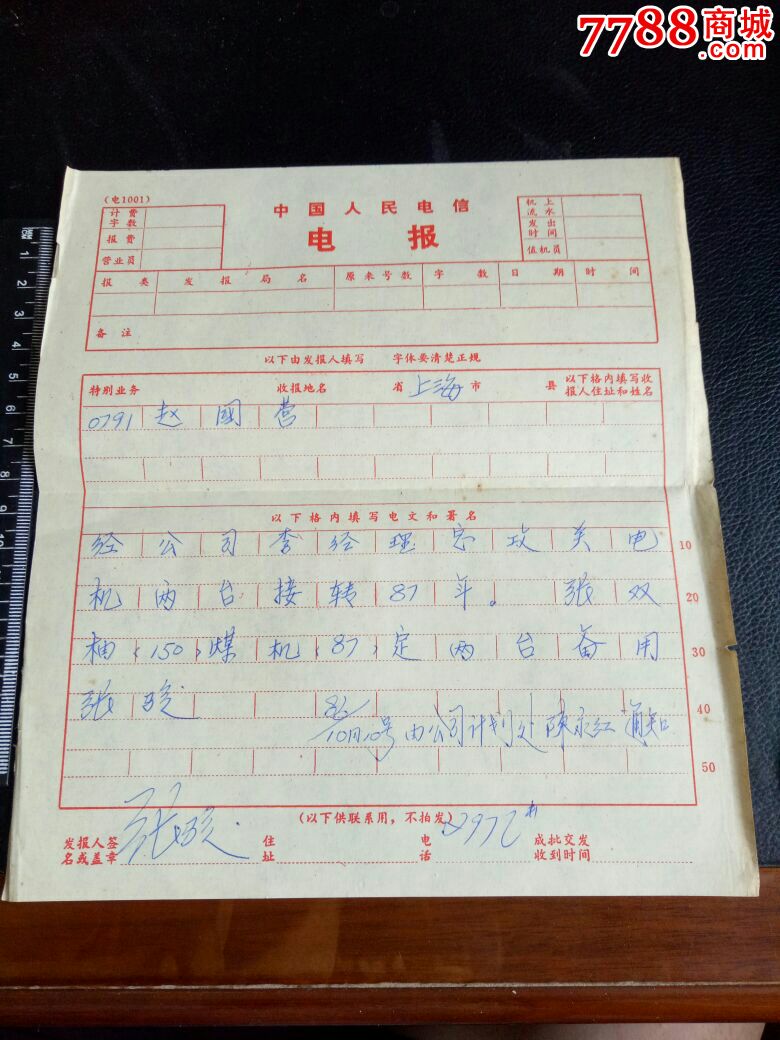 7788商城
.com
(电1001)
中国人民电信
电报
计费字数
报费
营业员
机上流水
发出时间
值机员
报类 发报局名 原来号数 字数 日期 时间
备注
以下由发报人填写 字体要清楚正规
特别业务 收报地名 省 上海 市 县 以下格内填写收报人住址和姓名
0791 赵國营
以下格内填写电文和署名
经公司李经理定攻关电 10
机两台接转87年。张双 20
柚〈150〉煤机〈87〉定两台备用 30
张骏 86/10月10号由公司计划处陈永红通知 40
50
(以下供联系用,不拍发)
发报人签名或盖章 张骏 住址 电话 成批交发收到时间